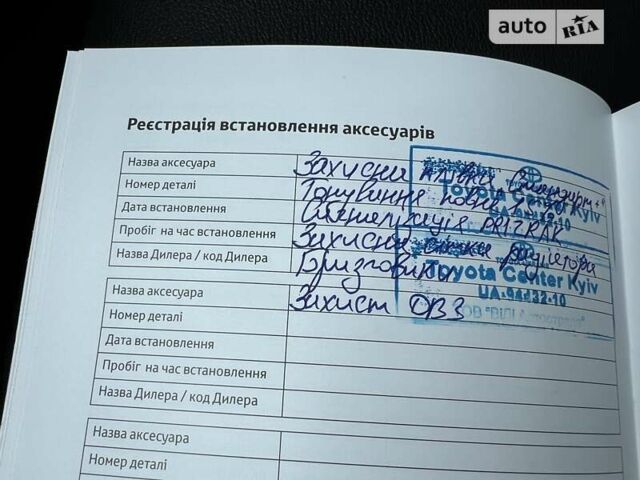 auto RIA
Реєстрація встановлення аксесуарів
Назва аксесуара Захисна плівка
Номер деталі Тонування повне
Toyota Center Kyiv
Дата встановлення Сигналізація PRIZRAK
Пробіг на час встановлення Захисна сітка радіатора
Назва Дилера / код Дилера Бризговики
Toyota Center Kyiv
UA-94d32-10
Назва аксесуара Захист ОВЗ
Номер деталі
Дата встановлення
Пробіг на час встановлення
Назва Дилера / код Дилера
Назва аксесуара
Номер деталі